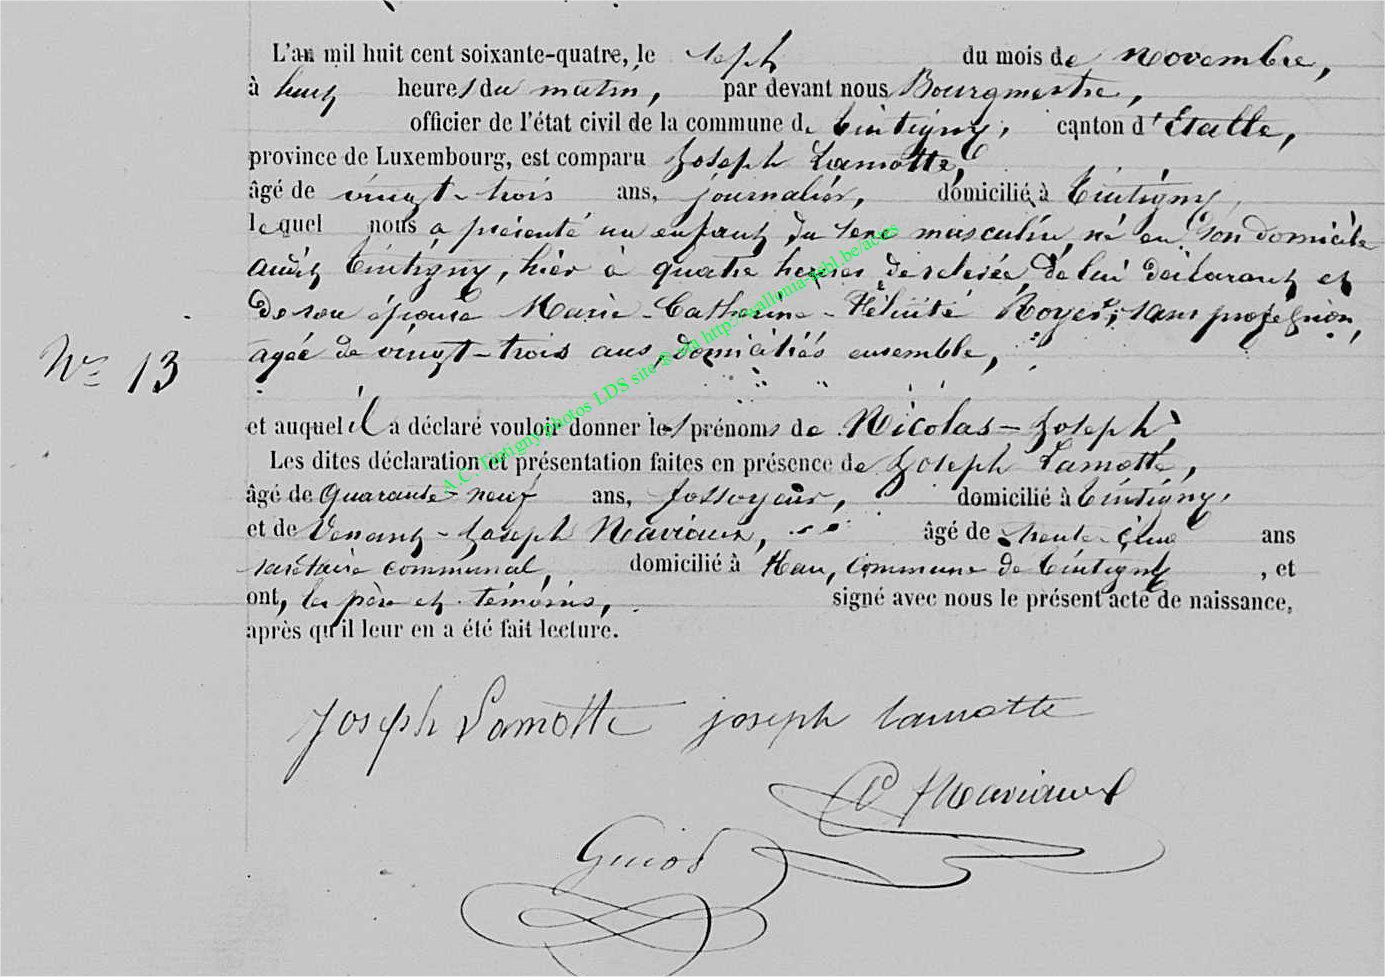 L'an mil huit cent soixante-quatre, le sept du mois de novembre,
à huit heures du matin, par devant nous Bourgmestre,
officier de l'état civil de la commune de Tintigny, canton d'Etalle,
province de Luxembourg, est comparu Joseph Lamotte,
âgé de vingt-trois ans, journalier, domicilié à Tintigny,
lequel nous a présenté un enfant du sexe masculin, né en son domicile
audit Tintigny, hier à quatre heures de relevée, de lui déclarant et
de son épouse Marie-Catherine-Félicité Royer, sans profession,
agée de vingt-trois ans, domiciliés ensemble,
Nº 13
et auquel il a déclaré vouloir donner les prénoms de Nicolas-Joseph,
Les dites déclaration et présentation faites en présence de Joseph Lamotte,
âgé de quarante-neuf ans, fossoyeur, domicilié à Tintigny,
et de Venant-Joseph Naviaux, âgé de trente-cinq ans
secrétaire communal, domicilié à Han, commune de Tintigny, et
ont, les père et témoins, signé avec nous le présent acte de naissance,
après qu'il leur en a été fait lecture.
Joseph Lamotte joseph lamotte
Naviaux
Guiot
A.C. Tintigny photos LDS site @ via http://wallonia-asbl.be/actes